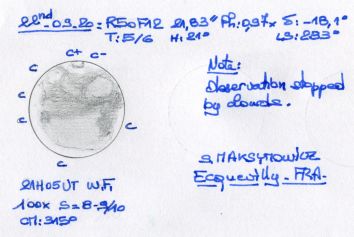 22nd-03.20: R50F12 21,83" Ph:0,97x δ:-18,1°
T:5/6 H:21° LS:283°
C+ C-
C
C
C
C
C
Note:
Observation stopped
by clouds.
S.MAKSYMOWICZ
Ecquevilly-FRA-
21H05UT W.F.
100x S=8-9/10
CM:315°